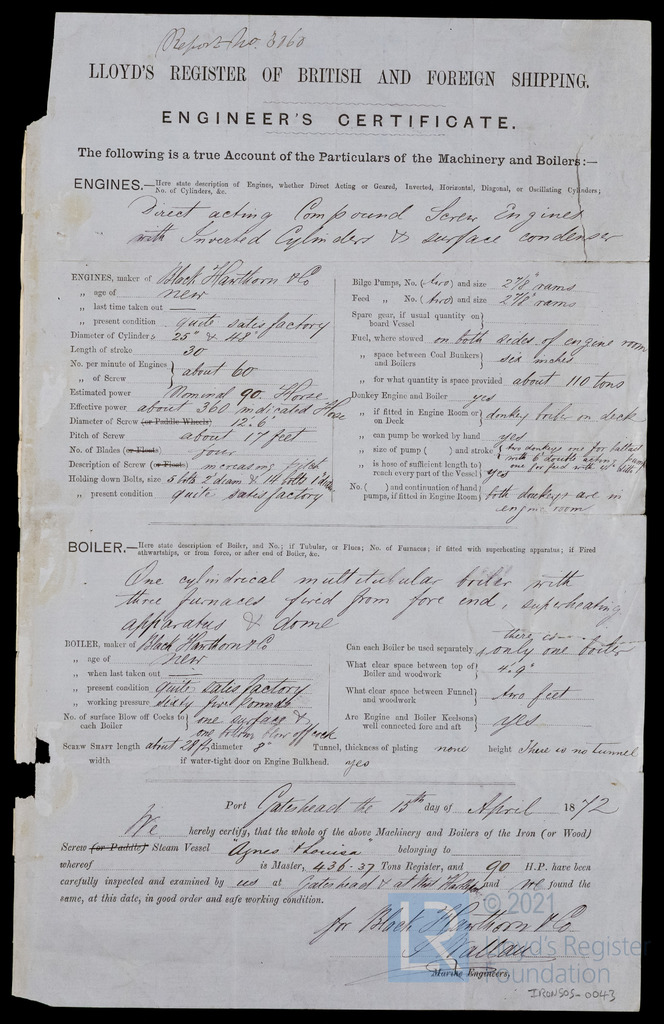 Report No. 3060
LLOYD'S REGISTER OF BRITISH AND FOREIGN SHIPPING.
ENGINEER'S CERTIFICATE.
The following is a true Account of the Particulars of the Machinery and Boilers:—
ENGINES.—Here state description of Engines, whether Direct Acting or Geared, Inverted, Horizontal, Diagonal, or Oscillating Cylinders;
No. of Cylinders, &c.
Direct acting Compound Screw Engines
with Inverted Cylinders & surface condenser
ENGINES, maker of Black Hawthorn & Co
„ age of new
„ last time taken out —
„ present condition quite satisfactory
Diameter of Cylinders 25" & 48"
Length of stroke 30
No. per minute of Engines
„ of Screw } about 60
Estimated power Nominal 90 Horse
Effective power about 360 indicated Horse
Diameter of Screw (or Paddle Wheels) 12.6"
Pitch of Screw about 17 feet
No. of Blades (or Floats) four
Description of Screw (or Floats) increasing pitch
Holding down Bolts, size 5 bolts 2" diam & 14 bolts 1"
„ present condition quite satisfactory
Bilge Pumps, No. (two) and size 2 7/8" rams
Feed „ No. (two) and size 2 7/8" rams
Spare gear, if usual quantity on
board Vessel }
Fuel, where stowed on both sides of engine room
„ space between Coal Bunkers
and Boilers } six inches
„ for what quantity is space provided about 110 tons
Donkey Engine and Boiler yes
„ if fitted in Engine Room or
on Deck } donkey boiler on deck
„ can pump be worked by hand yes
„ size of pump ( ) and stroke { two donkeys one for ballast
with 6" double acting pump
one for feed with
„ is hose of sufficient length to
reach every part of the Vessel } yes
No. ( ) and continuation of hand
pumps, if fitted in Engine Room } both donkeys are in
engine room
BOILER.—Here state description of Boiler, and No.; if Tubular, or Flues; No. of Furnaces; if fitted with superheating apparatus; if Fired
athwartships, or from fore, or after end of Boiler, &c.
One cylindrical multitubular boiler with
three furnaces fired from fore end, superheating
apparatus & dome
BOILER, maker of Black Hawthorn & Co
„ age of new
„ when last taken out —
„ present condition quite satisfactory
„ working pressure sixty five pounds
No. of surface Blow off Cocks to
each Boiler } one surface &
one bottom blow off cock
Can each Boiler be used separately } there is
only one boiler
What clear space between top of
Boiler and woodwork } 4.9"
What clear space between Funnel
and woodwork } two feet
Are Engine and Boiler Keelsons
well connected fore and aft } yes
SCREW SHAFT length about 28 ft diameter 8" Tunnel, thickness of plating none height There is no tunnel
width if water-tight door on Engine Bulkhead. yes
Port Gateshead the 15th day of April 1872
We hereby certify, that the whole of the above Machinery and Boilers of the Iron (or Wood)
Screw (or Paddle) Steam Vessel "Agnes & Louisa" belonging to
whereof is Master, 436.37 Tons Register, and 90 H.P. have been
carefully inspected and examined by us at Gateshead & at West Hartlepool and we found the
same, at this date, in good order and safe working condition.
for Black Hawthorn & Co
Marine Engineers,
© 2021
LR Lloyd's Register
Foundation
IRONSOS-0043